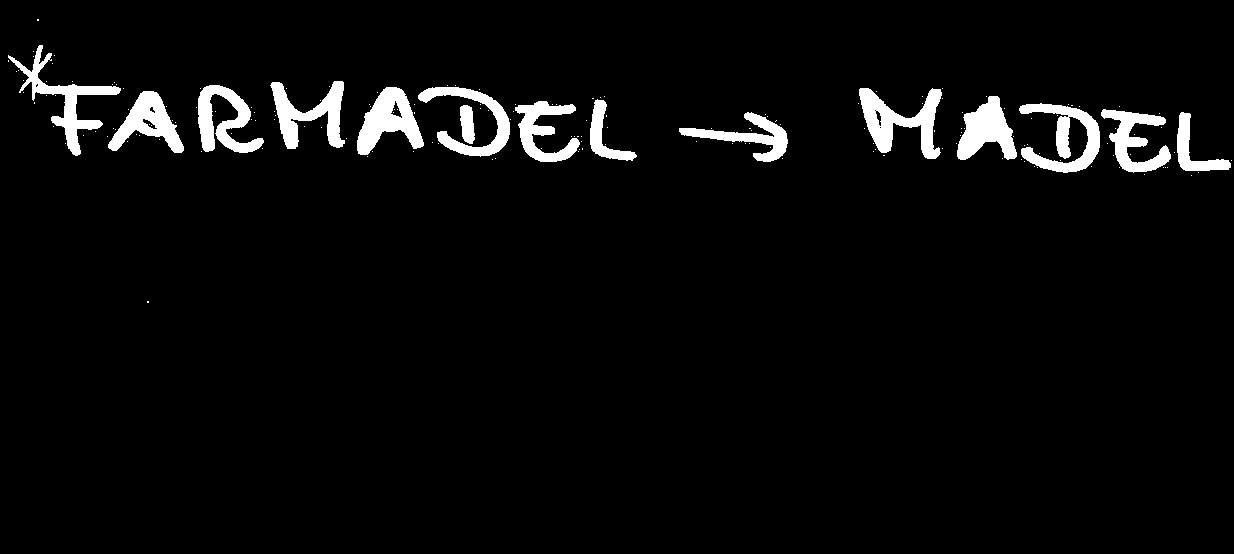 *FARMADEL → MADEL